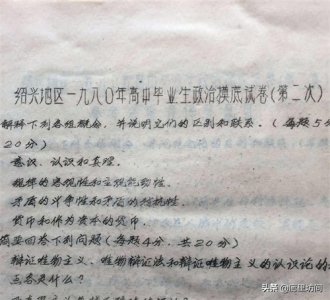 绍兴地区一九八〇年高中毕业生政治摸底试卷(第二次)
解释下列各组概念，并说明它们的区别和联系。(每题5分
20分)
意识、认识和真理。
规律的客观性和主观能动性。
矛盾的斗争性和矛盾的对抗性。
货币和作为资本的货币。
简要回答下列问题(每题4分、共20分)
辩证唯物主义、唯物辩证法和辩证唯物主义的认识论的
是什么?
头条 @底楼坊间